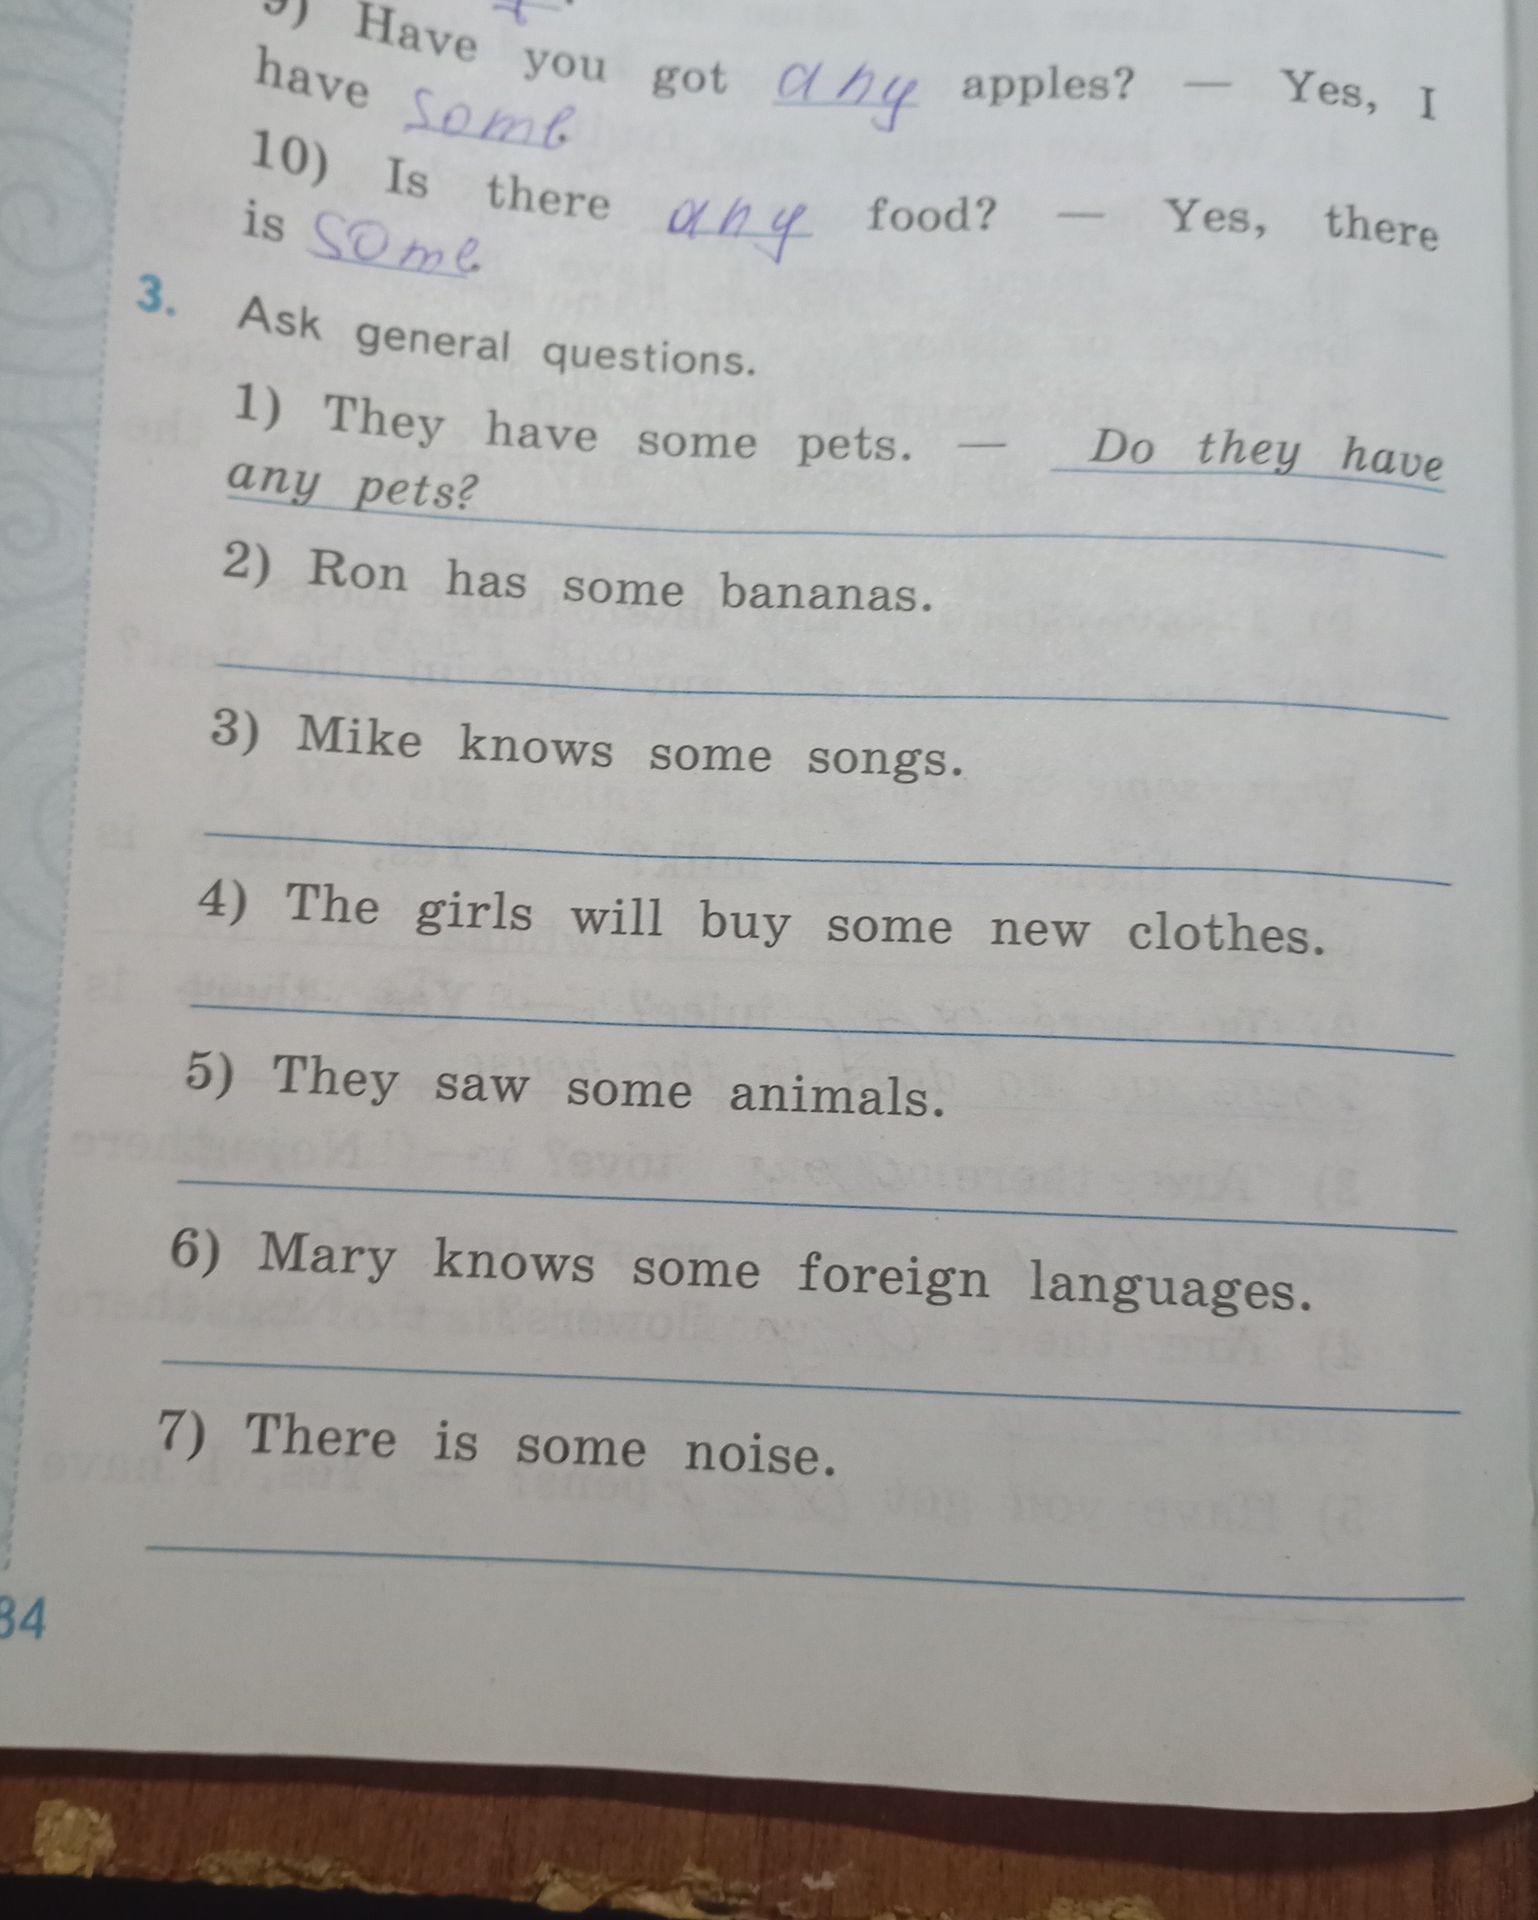 9) Have you got any apples? — Yes, I
have some.
10) Is there any food? — Yes, there
is some.
3. Ask general questions.
1) They have some pets. — Do they have
any pets?
2) Ron has some bananas.
3) Mike knows some songs.
4) The girls will buy some new clothes.
5) They saw some animals.
6) Mary knows some foreign languages.
7) There is some noise.
84